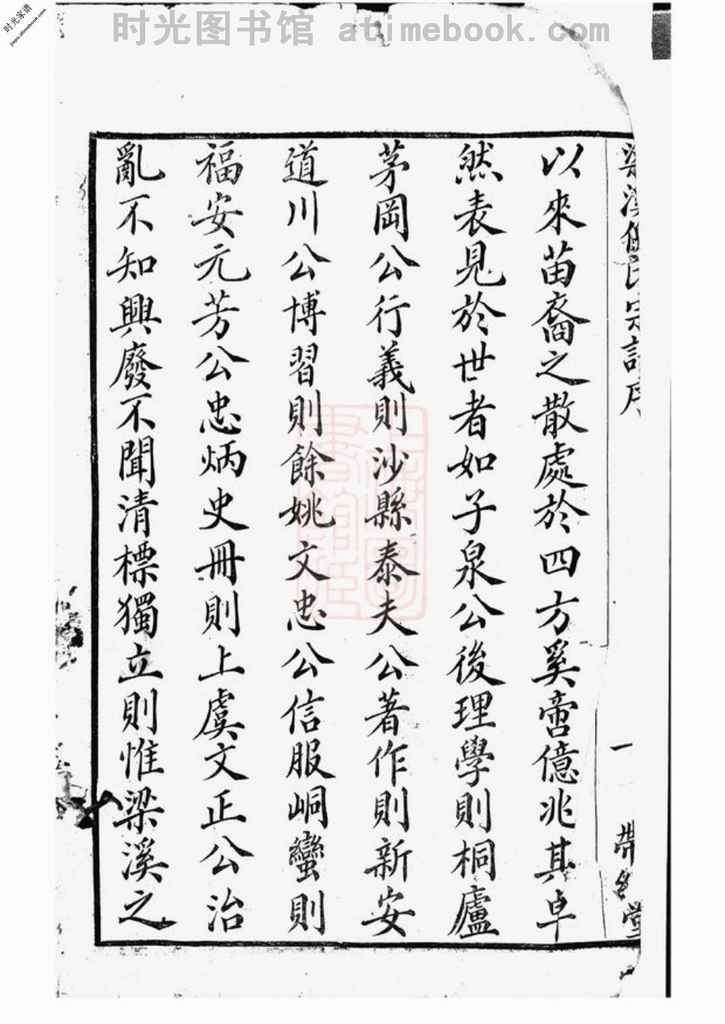 时光图书馆 atimebook.com
时光家谱
以來苗裔之散處於四方奚啻億兆其卓
然表見於世者如子泉公後理學則桐廬
茅岡公行義則沙縣泰夫公著作則新安
道川公博習則餘姚文忠公信服峒蠻則
福安元芳公忠炳史冊則上虞文正公治
亂不知興廢不聞清標獨立則惟梁溪之
一